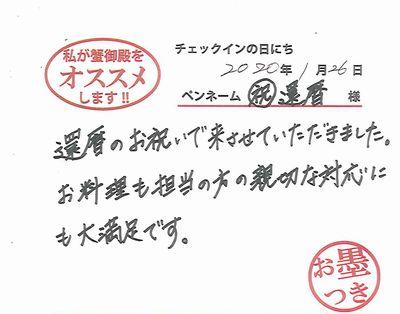 私が蟹御殿を
オススメ
します!!
チェックインの日にち
2020年1月26日
ペンネーム ㊗還暦 様
還暦のお祝いで来させていただきました。
お料理も担当の方の親切な対応に
も大満足です。
お墨
つき